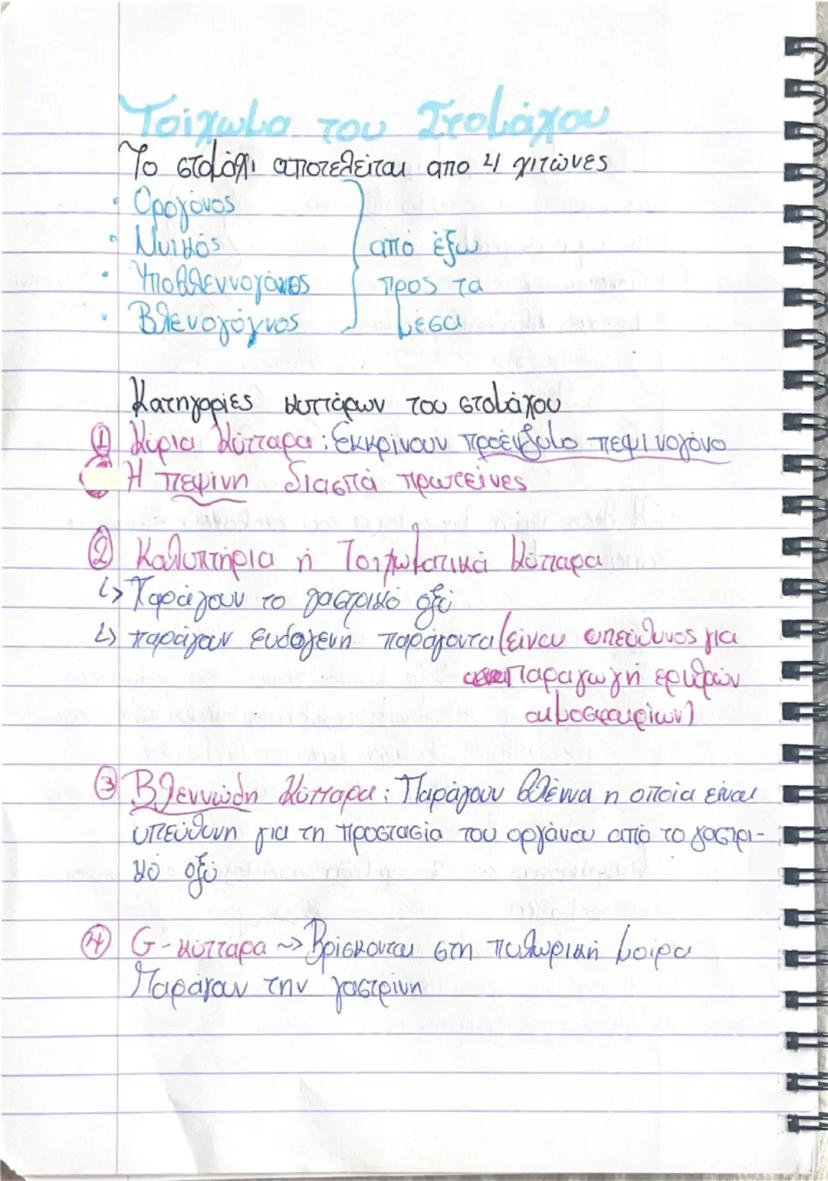 Τοίχωμα του Στομάχου
Το στομάχι αποτελείται απο 4 χιτώνες
• Ορογόνος
• Μυικός από έξω
• Υποβλεννογόνος προς τα
• Βλενογόγνος μέσα
Κατηγορίες κυττάρων του στομάχου
① Κύρια κύτταρα: Εκκρίνουν προένζυμο πεψινογόνο
Η πεψίνη διασπά πρωτεΐνες
② Καλυπτήρια ή Τοιχωματικά κύτταρα
↳ Παράγουν το γαστρικό οξύ
↳ παράγουν ενδογενή παράγοντα (είναι υπεύθυνος για
παραγωγή ερυθρών
αιμοσφαιρίων)
③ Βλεννώδη κύτταρα: Παράγουν βλέννα η οποία είναι
υπεύθυνη για τη προστασία του οργάνου από το γαστρι-
κό οξύ
④ G-κύτταρα ~> Βρίσκονται στη πυλωρική μοίρα
Παράγουν την γαστρίνη